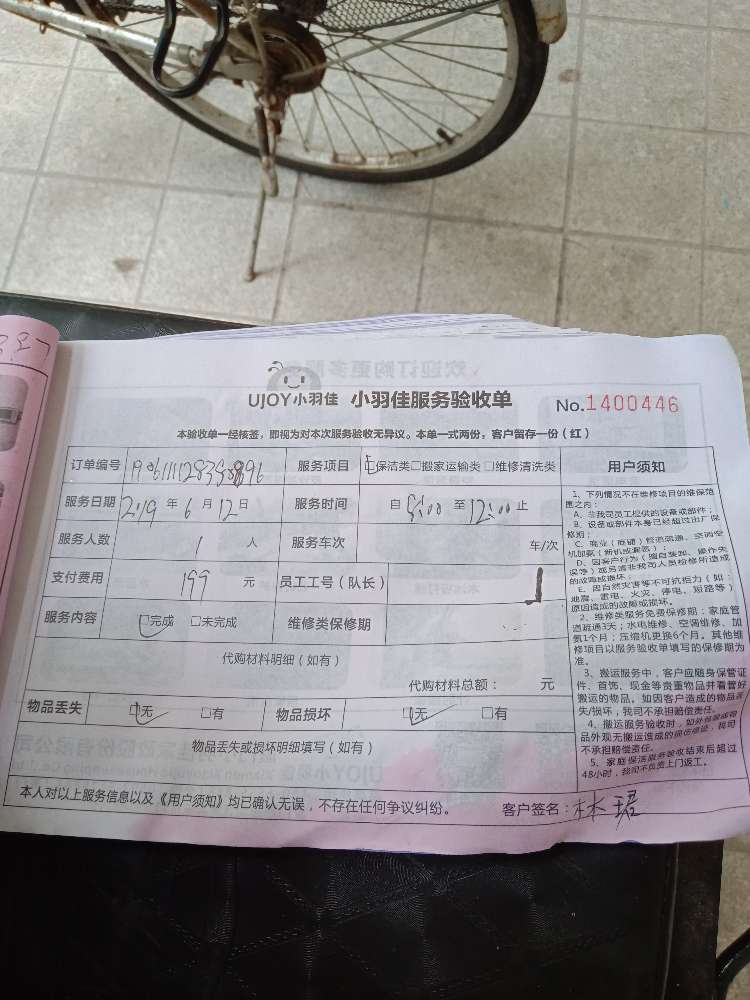 UJOY小羽佳 小羽佳服务验收单 No.1400446
本验收单一经核签，即视为对本次服务验收无异议。本单一式两份，客户留存一份（红）
订单编号 服务项目 □保洁类□搬家运输类 □维修清洗类
服务日期 2019 年 6 月 12 日 服务时间 自 至 12:00 止
服务人数 1 人 服务车次 车/次
支付费用 199 元 员工工号（队长）
服务内容 □完成 □未完成 维修类保修期
代购材料明细（如有）
代购材料总额： 元
物品丢失 □无 □有 物品损坏 □无 □有
物品丢失或损坏明细填写（如有）
本人对以上服务信息以及《用户须知》均已确认无误，不存在任何争议纠纷。 客户签名：林珺
用户须知
1、下列情况不在维修项目的维保范
围之内：
A、非我司员工提供的设备或部件；
B、设备或部件本身已经超过出厂保
修期；
C、商业（商铺）管道疏通、空调安
机加氨（新机或漏氨）；
D、因客户行为（擅自安装、操作失
误等）或另请非我司人员检修所造成
的故障或损坏；
E、因自然灾害等不可抗力（如：
地震、雷电、火灾、停电、短路等）
原因造成的故障或损坏。
2、维修类服务免费保修期：家庭管
道疏通3天；水电维修、空调维修、加
氨1个月；压缩机更换6个月。其他维
修项目以服务验收单填写的保修期为
准。
3、搬运服务中，客户应随身保管证
件、首饰、现金等贵重物品并看管好
搬运的物品。如因客户造成的物品丢
失/损坏，我司不承担赔偿责任。
4、搬运服务验收时，如外包装或物
品外观无搬运造成的损伤痕迹，我司
不承担赔偿责任。
5、家庭保洁服务验收结束后超过
48小时，我司不负责上门返工。